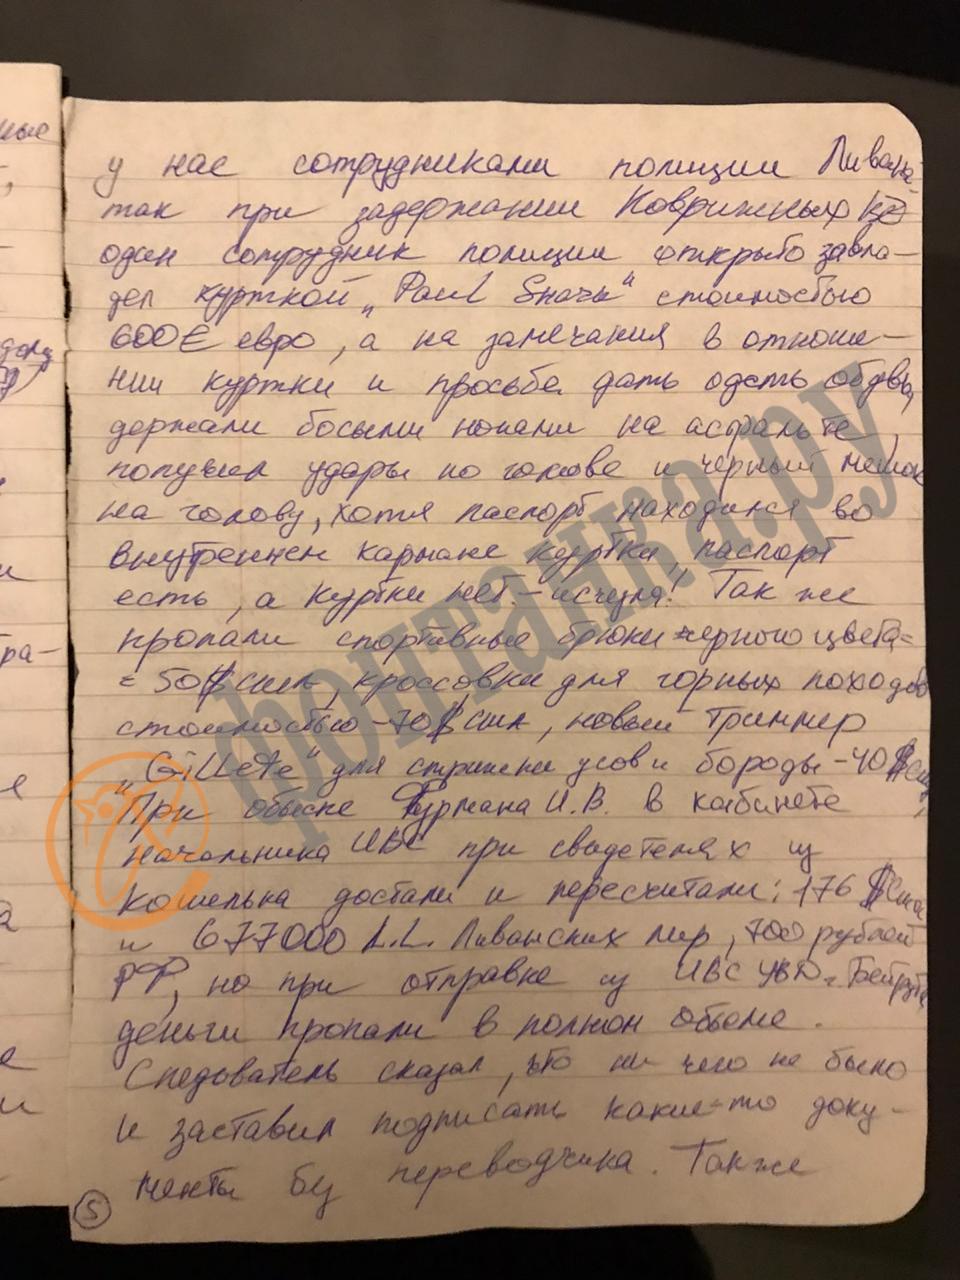 у нас сотрудниками полиции Ливана-
так при задержании Коврижных
один сотрудник полиции открыто завла-
дел курткой „Paul Shark" стоимостью
600€ евро, а на замечания в отноше-
нии куртки и просьбе дать одеть обувь,
держали босыми ногами на асфальте,
получил удары по голове и черный мешок
на голову, хотя паспорт находился во
внутреннем кармане куртки, паспорт
есть, а куртки нет - исчезла! Так же
пропали спортивные брюки черного цвета =
= 50$ сша, кроссовки для горных походов
стоимостью - 70$ сша, новый триммер
„Gillete" для стрижки усов и бороды - 40$ сша,
При обыске Фурмана И.В. в кабинете
начальника ИВС при свидетелях из
кошелька достали и пересчитали: 176 $ сша
и 677000 L.L. Ливанских лир, 700 рублей
РФ, но при отправке из ИВС УВД г. Бейрута
деньги пропали в полном объеме.
Следователь сказал, что ни чего не было
и заставил подписать какие-то доку-
менты бз переводчика. Также
5
фонтанка.ру